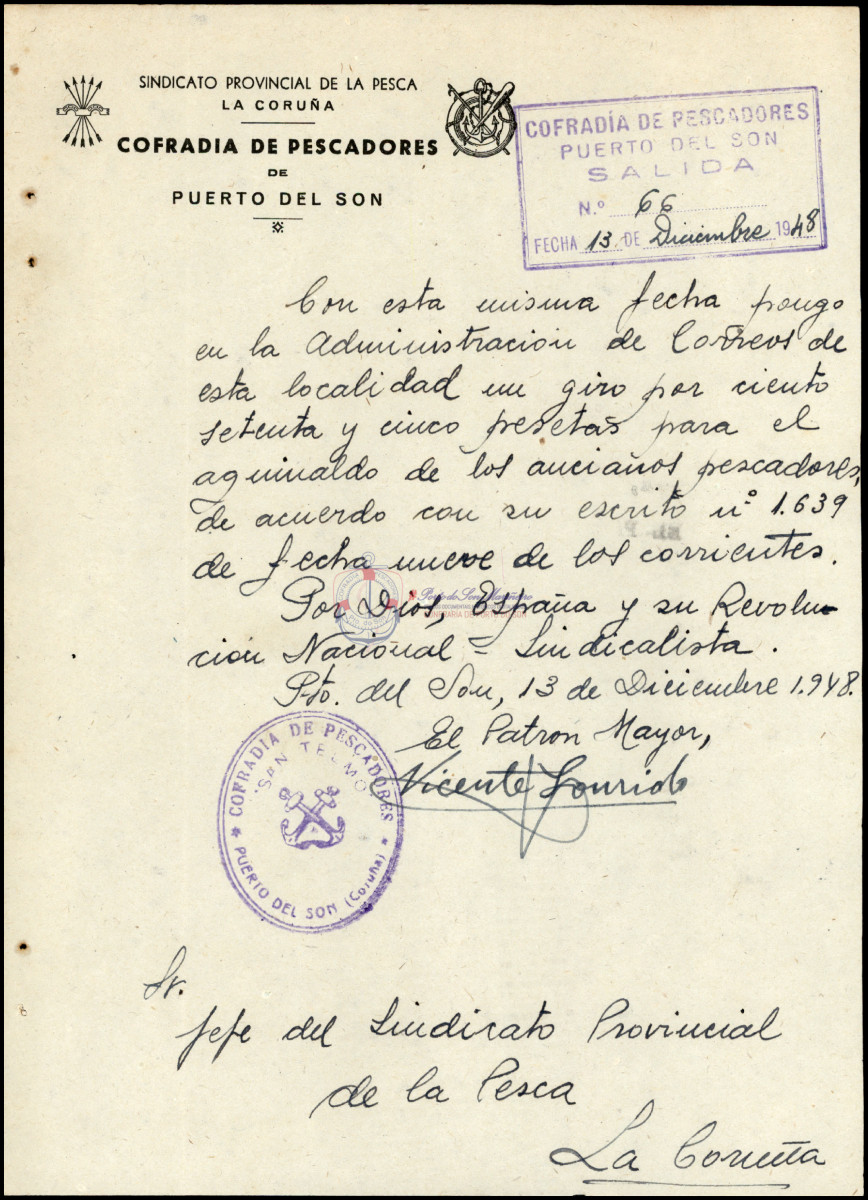 SINDICATO PROVINCIAL DE LA PESCA
LA CORUÑA
COFRADIA DE PESCADORES
DE
PUERTO DEL SON
COFRADÍA DE PESCADORES
PUERTO DEL SON
SALIDA
N.º 66
FECHA 13 DE Diciembre 1948
Con esta misma fecha pongo
en la Administración de Correos de
esta localidad un giro por ciento
setenta y cinco pesetas para el
aguinaldo de los ancianos pescadores,
de acuerdo con su escrito nº 1.639
de fecha nueve de los corrientes.
Por Dios, España y su Revolu-
cion Nacional=Sindicalista.
Pto. del Son, 13 de Diciembre 1.948.
El Patron Mayor,
Vicente Lourido
COFRADIA DE PESCADORES
"SAN TELMO"
PUERTO DEL SON (Coruña)
Sr.
Jefe del Sindicato Provincial
de la Pesca
La Coruña